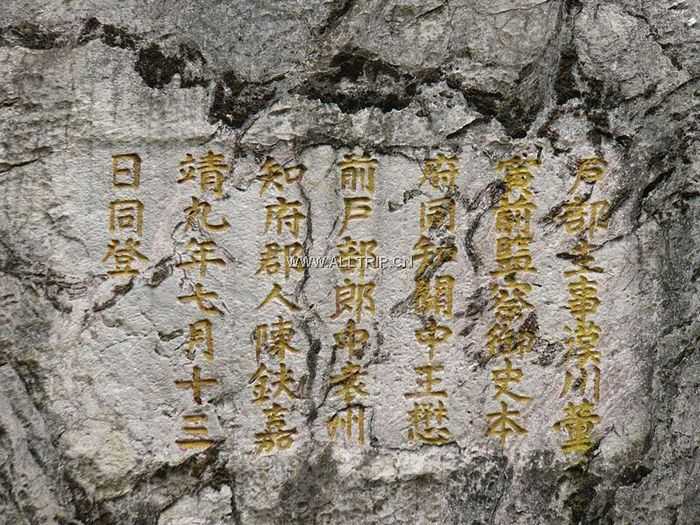 戶部主事漢川董
寅前監察御史本
府同知關中王懋
前戶部郎中袁州
知府郡人陳鈇嘉
靖九年七月十三
日同登
WWW.ALLTRIP.CN